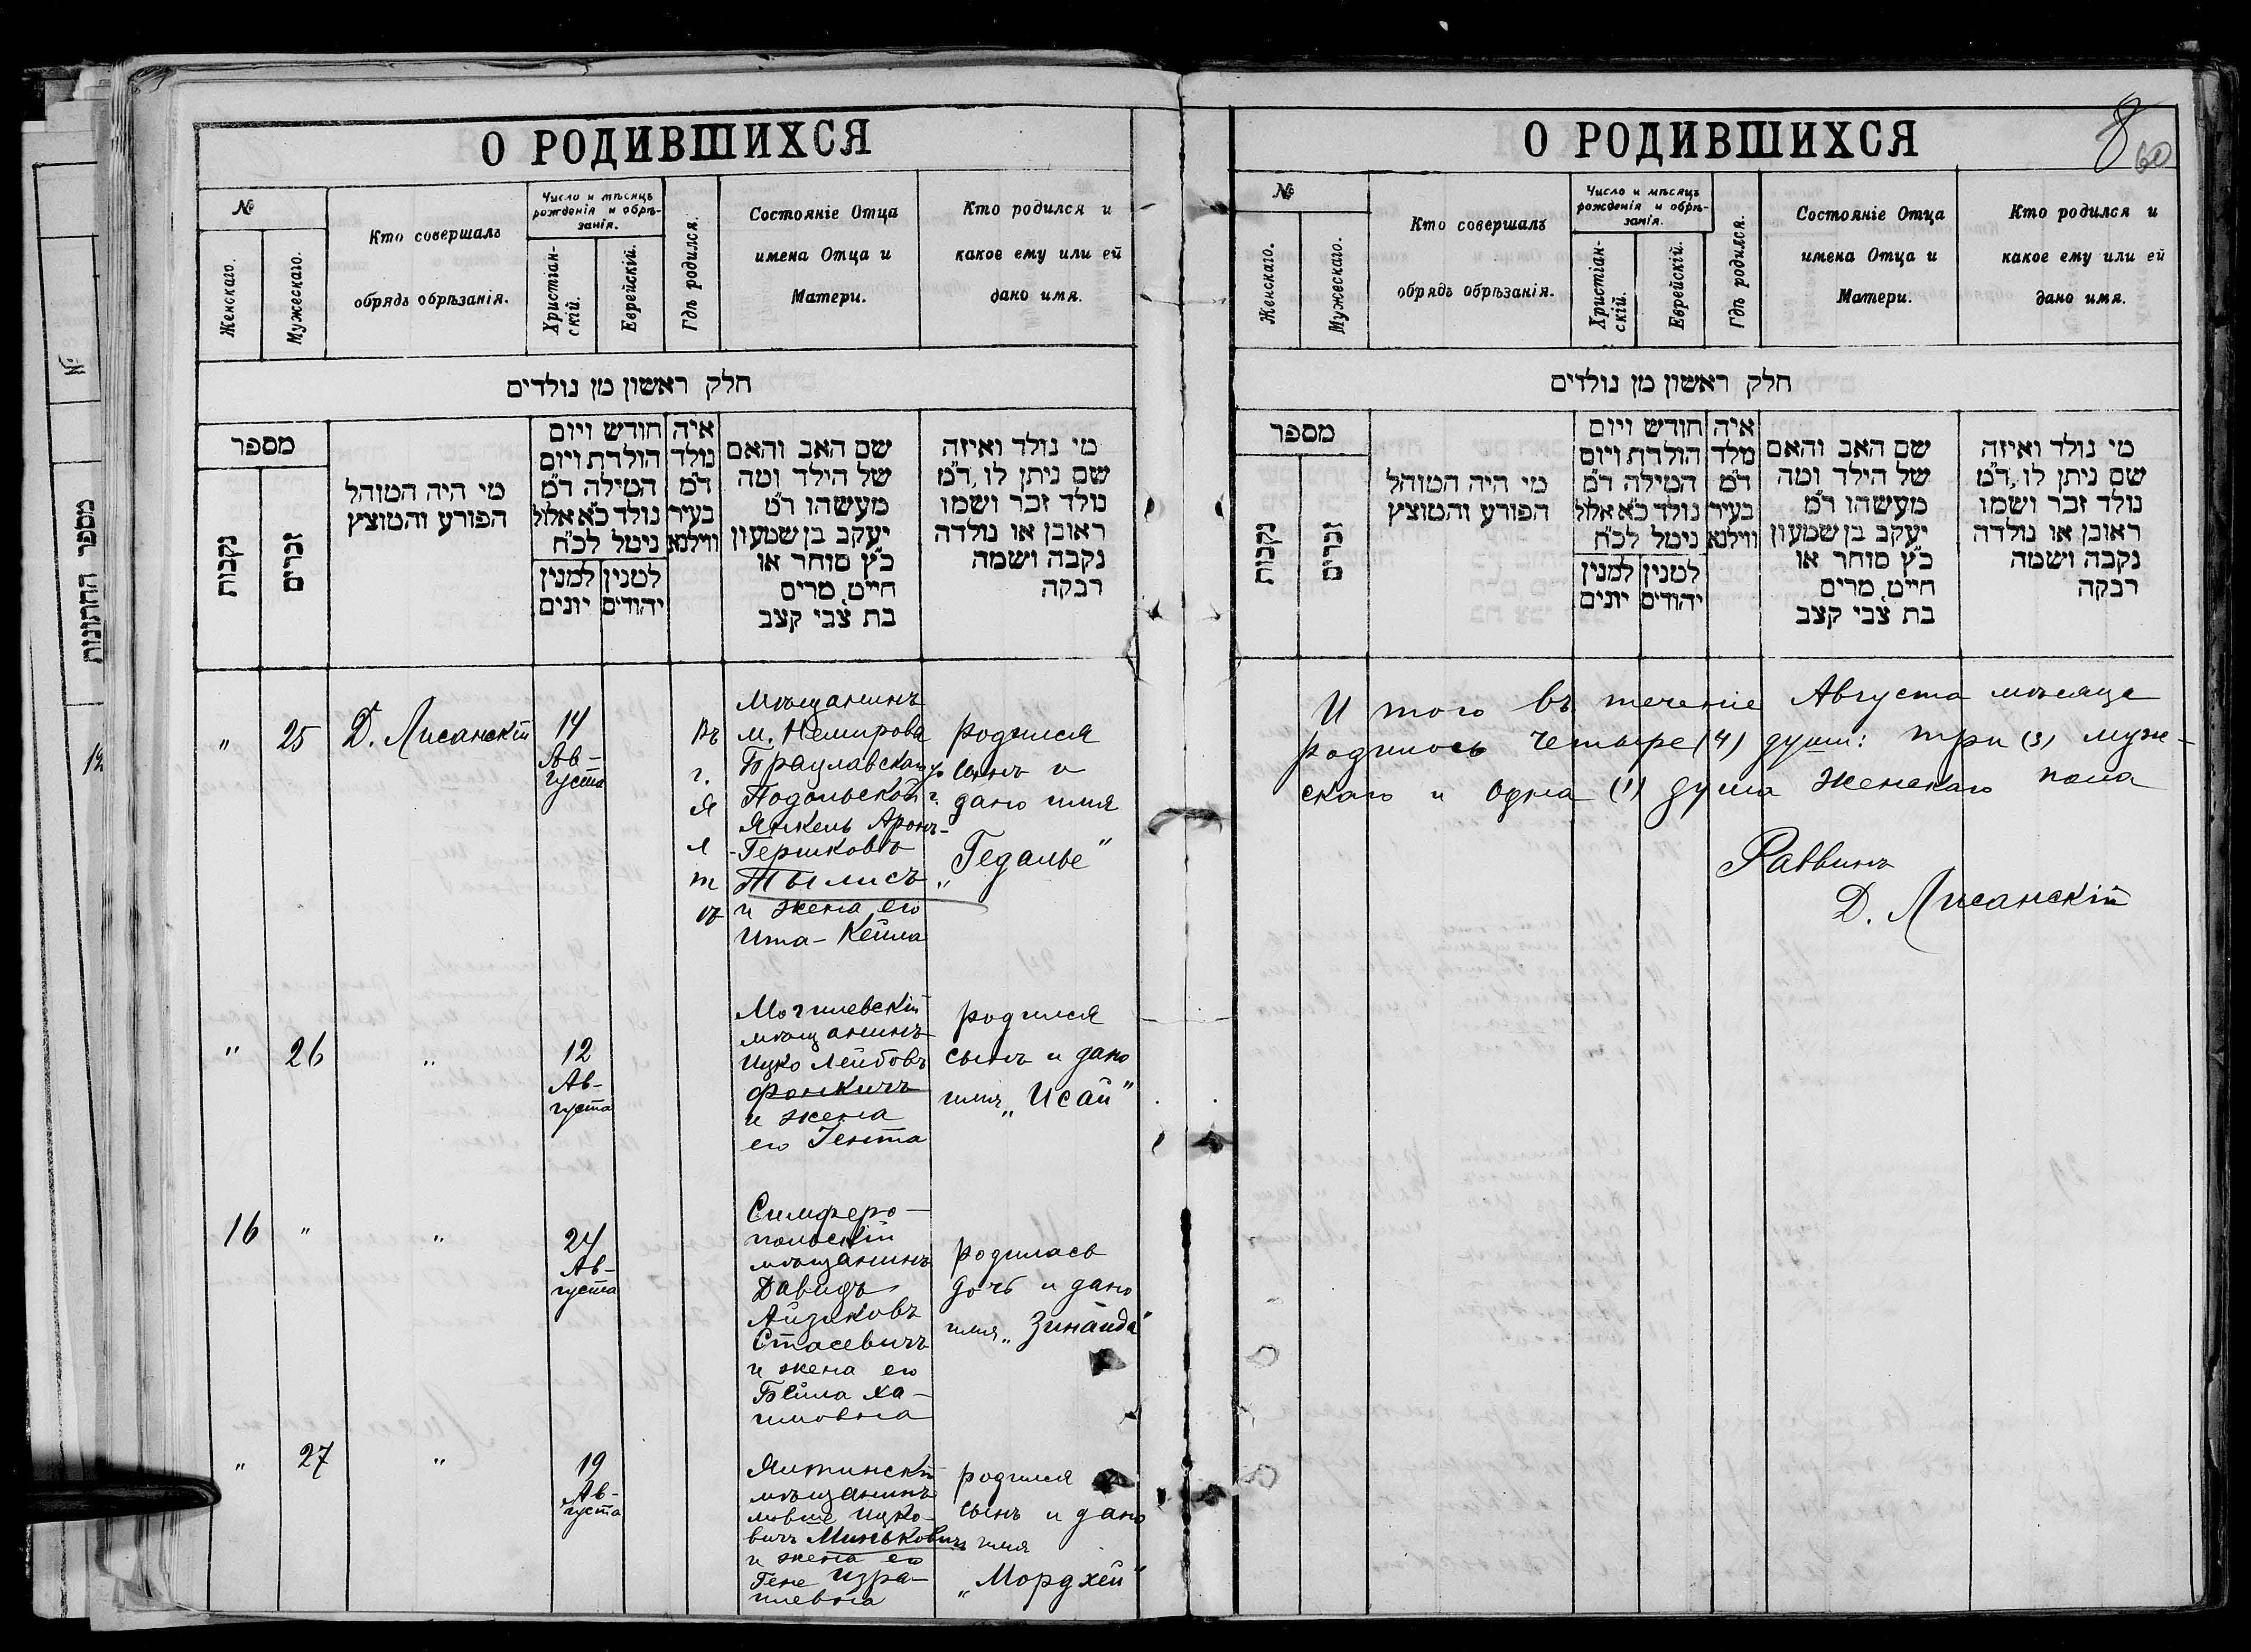 О РОДИВШИХСЯ
№
Женскаго.
Мужескаго.
Кто совершалъ
обрядъ обрѣзанія.
Число и мѣсяцъ
рожденія и обрѣ-
занія.
Христіан-
скій.
Еврейскій.
Гдѣ родился.
Состояніе Отца
имена Отца и
Матери.
Кто родился и
какое ему или ей
дано имя.
חלק ראשון מן נולדים
מספר
נקבות
זכרים
מי היה המוהל
הפורע והמוצץ
חודש ויום
הולדת ויום
המילה ד"מ
נולד כ"א אלול
ניטל לכ"ח
למנין
יונים
למנין
יהודים
איה
נולד
ד"מ
בעיר
ווילנא
שם האב והאם
של הילד ומה
מעשהו ד"מ
יעקב בן שמעון
כ"ץ סוחר או
חייט, מרים
בת צבי קצב
מי נולד ואיזה
שם ניתן לו, ד"מ
נולד זכר ושמו
ראובן או נולדה
נקבה ושמה
רבקה
" 25 Д. Лисанскій
14
Ав-
густа
Въ
г.
Я
л
т
ѣ
Мѣщанинъ
м. Немирова
Брацлавскаго у
Подольской г.
Янкель Аронъ-
Гершковъ
Тылисъ
и жена его
Ита-Кейла
родился
сынъ и
дано имя
„Гедалье"
" 26 "
12
Ав-
густа
Могилевскій
мѣщанинъ
Ицко Лейбовъ
Фонкичъ
и жена
его Гента
родился
сынъ и дано
имя „Исай"
16 " "
24
Ав-
густа
Симферо-
польскій
мѣщанинъ
Давидъ
Айзиковъ
Стасевичъ
и жена его
Бейла Ха-
имовна
родилась
дочь и дано
имя „Зинаида"
" 27 "
19
Ав-
густа
Ялтинскій
мѣщанинъ
Мовше Ицко-
вичъ Миньковичъ
и жена его
Гене Изра-
илевна
родился
сынъ и дано
имя
„Мордхей"
О РОДИВШИХСЯ
8
60
№
Женскаго.
Мужескаго.
Кто совершалъ
обрядъ обрѣзанія.
Число и мѣсяцъ
рожденія и обрѣ-
занія.
Христіан-
скій.
Еврейскій.
Гдѣ родился.
Состояніе Отца
имена Отца и
Матери.
Кто родился и
какое ему или ей
дано имя.
חלק ראשון מן נולדים
מספר
נקבות
זכרים
מי היה המוהל
הפורע והמוצץ
חודש ויום
הולדת ויום
המילה ד"מ
נולד כ"א אלול
ניטל לכ"ח
למנין
יונים
למנין
יהודים
איה
מלד
ד"מ
בעיר
ווילנא
שם האב והאם
של הילד ומה
מעשהו ד"מ
יעקב בן שמעון
כ"ץ סוחר או
חייט, מרים
בת צבי קצב
מי נולד ואיזה
שם ניתן לו, ד"מ
נולד זכר ושמו
ראובן או נולדה
נקבה ושמה
רבקה
И того въ теченіе Августа мѣсяца
родилось четыре (4) души: три (3) муж-
скаго и одна (1) душа женскаго пола
Раввинъ
Д. Лисанскій
№
מספר החתונות
12